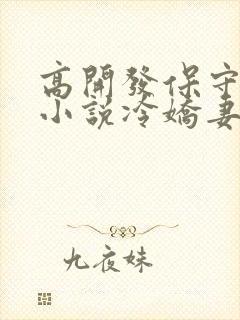 高開發保守
小說冷嬌妻
九夜妹